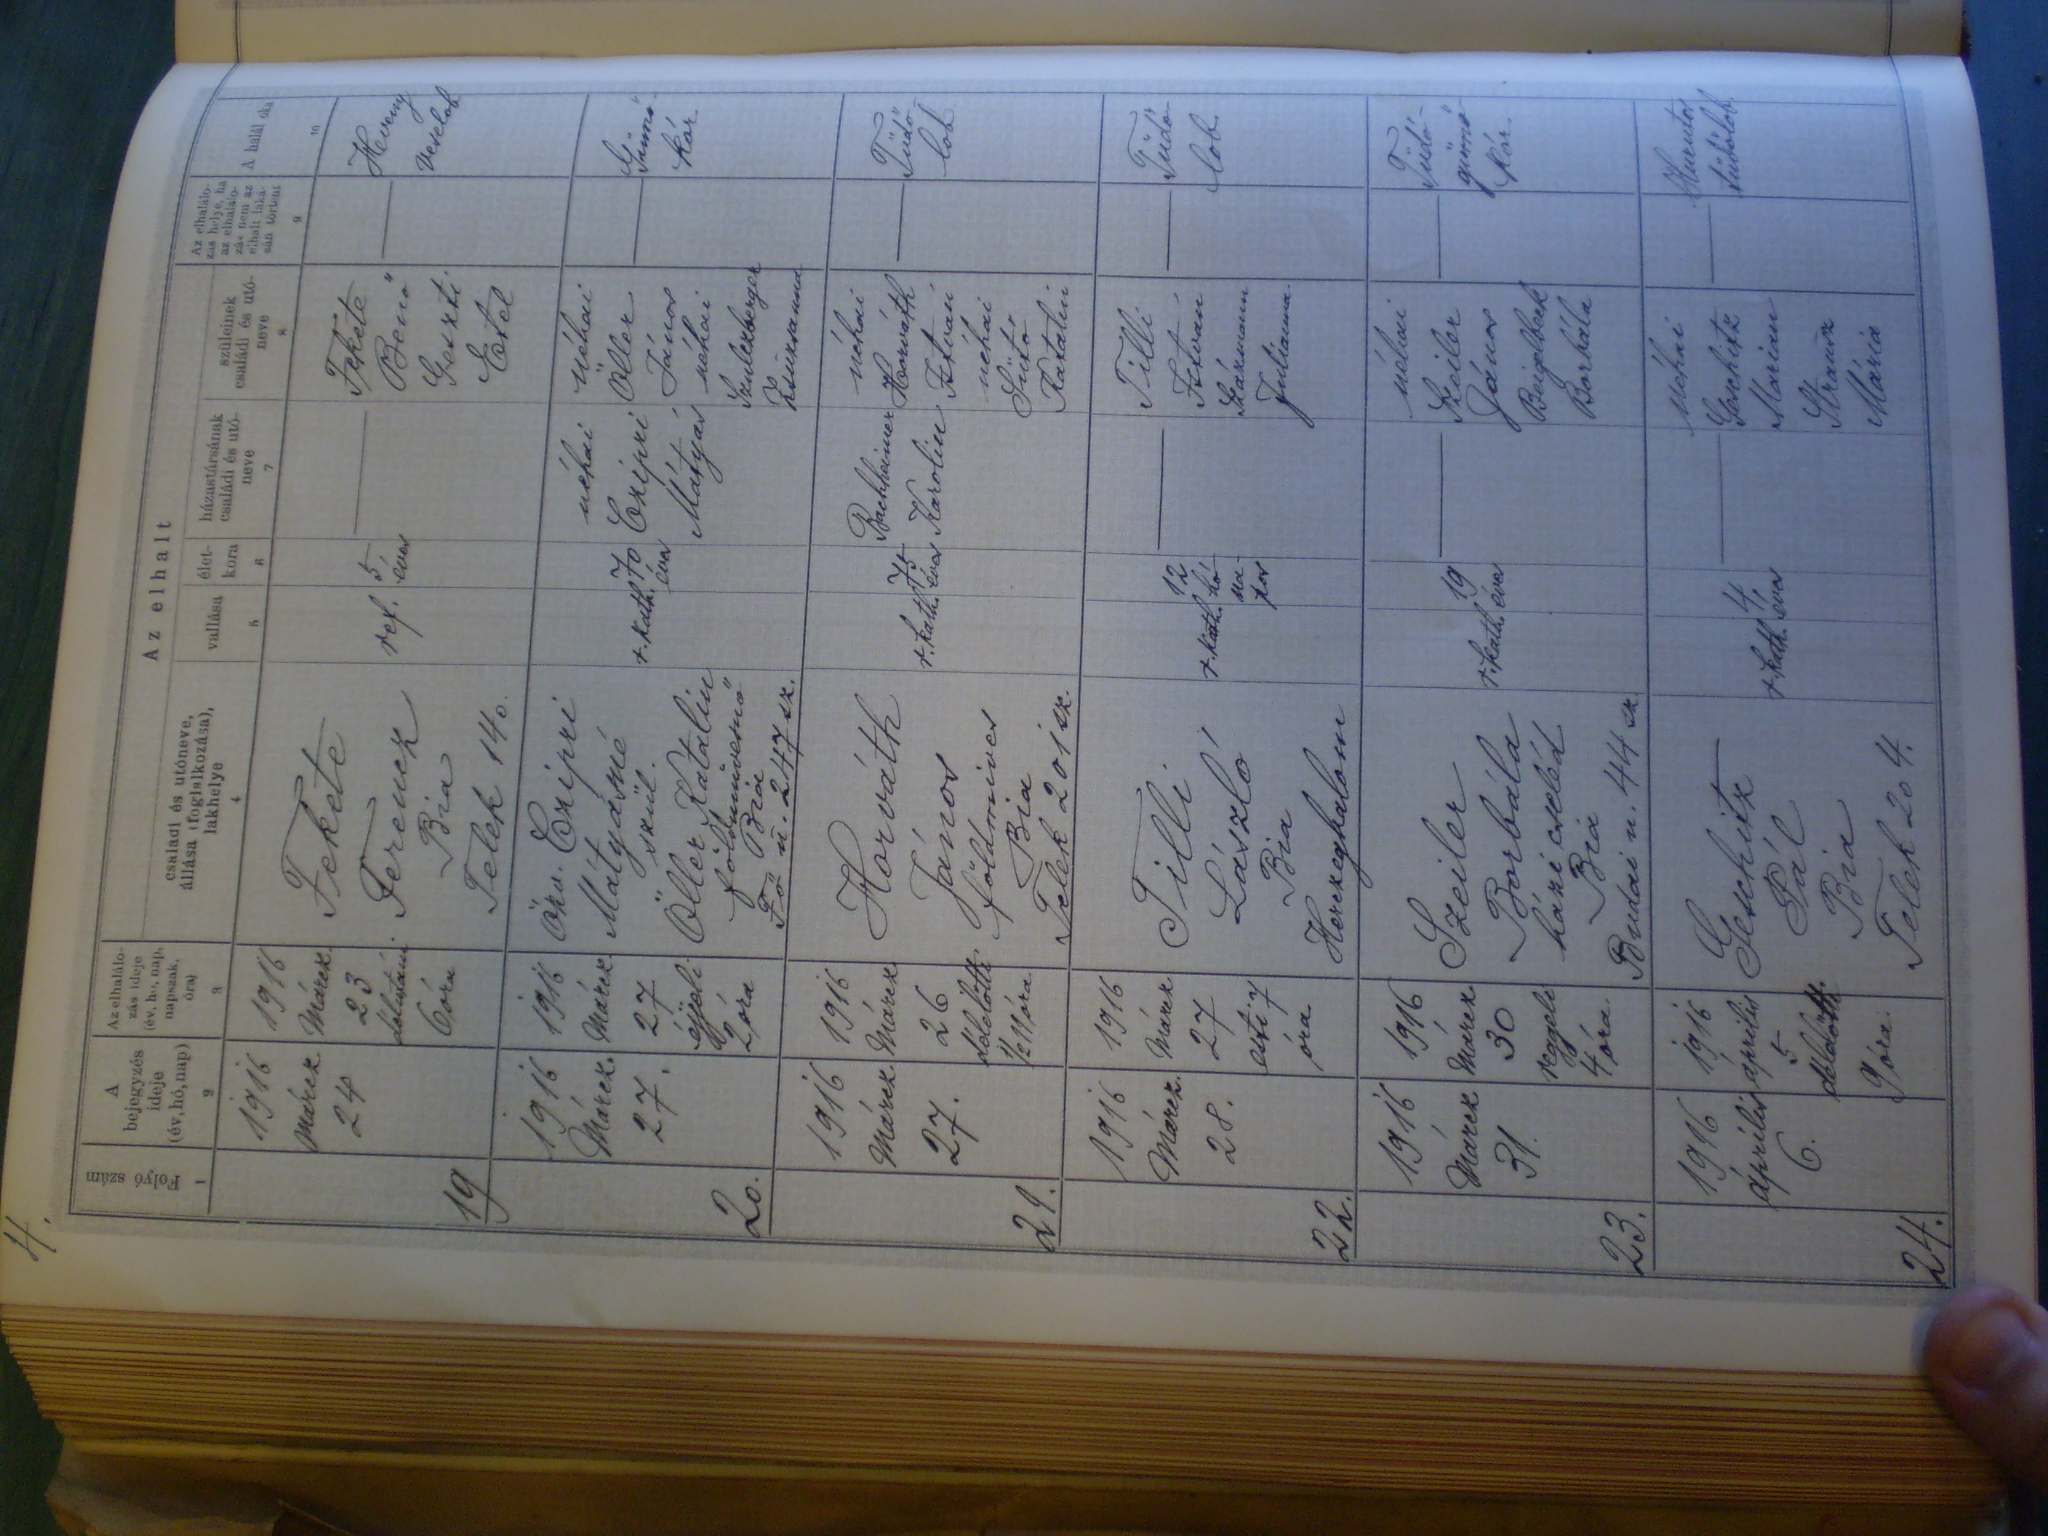 4.
Az elhalt
Folyó szám
A bejegyzés ideje (év, hó, nap)
Az elhalálozás ideje (év, hó, nap, napszak, óra)
családi és utóneve, állása (foglalkozása), lakhelye
vallása
életkora
házastársának családi és utóneve
szüleinek családi és utóneve
Az elhalálozás helye, ha az elhalálozás nem az elhalt lakásán történt
A halál oka
1 2 3 4 5 6 7 8 9 10
19
1916
Márcz.
24
1916
Márcz.
23
délutáni
6 óra
Fekete
Ferencz
Bia
Telek 140.
ref.
5
éves
Fekete
Benő
Geszti
Etel
Heveny
veselob
20.
1916
Márcz.
27.
1916
Márcz.
27
éjjeli
2 óra
Özv. Czipri
Mátyásné
szül.
Öller Katalin
földmívesnő
Bia
Fő u. 247 sz.
r. kath.
70
éves
néhai
Czipri
Mátyás
néhai
Öller
János
néhai
Szulczberger
Zsuzsanna
Gümő-
kór
21.
1916
Márcz.
27.
1916
Márcz.
26
délelőtti
1/2 11 óra
Horváth
János
földmíves
Bia
Telek 201 sz.
r. kath.
75
éves
Karolin
néhai
Horváth
István
néhai
Sütő
Katalin
Tüdő-
lob
22.
1916
Márcz.
28.
1916
Márcz.
27
esti 7
óra
Tilli
László
Bia
Herczeghalom
r. kath.
12
hó-
na-
pos
Tilli
István
Julianna
Tüdő-
lob
23.
1916
Márcz
31.
1916
Márcz.
30
reggeli
4 óra
Szeiler
Borbála
házi cseléd
Bia
Budai u. 44 sz.
r. kath.
19
éves
néhai
Szeiler
János
Beigelbeck
Borbála
Tüdő-
gümő-
kór
24.
1916
április
6.
1916
április
5
délelőtt
9 óra
Geschitz
Pál
Bia
Telek 204.
r. kath.
4
éves
néhai
Geschitz
Marian
Strausz
Mária
Hurutos
tüdőlob